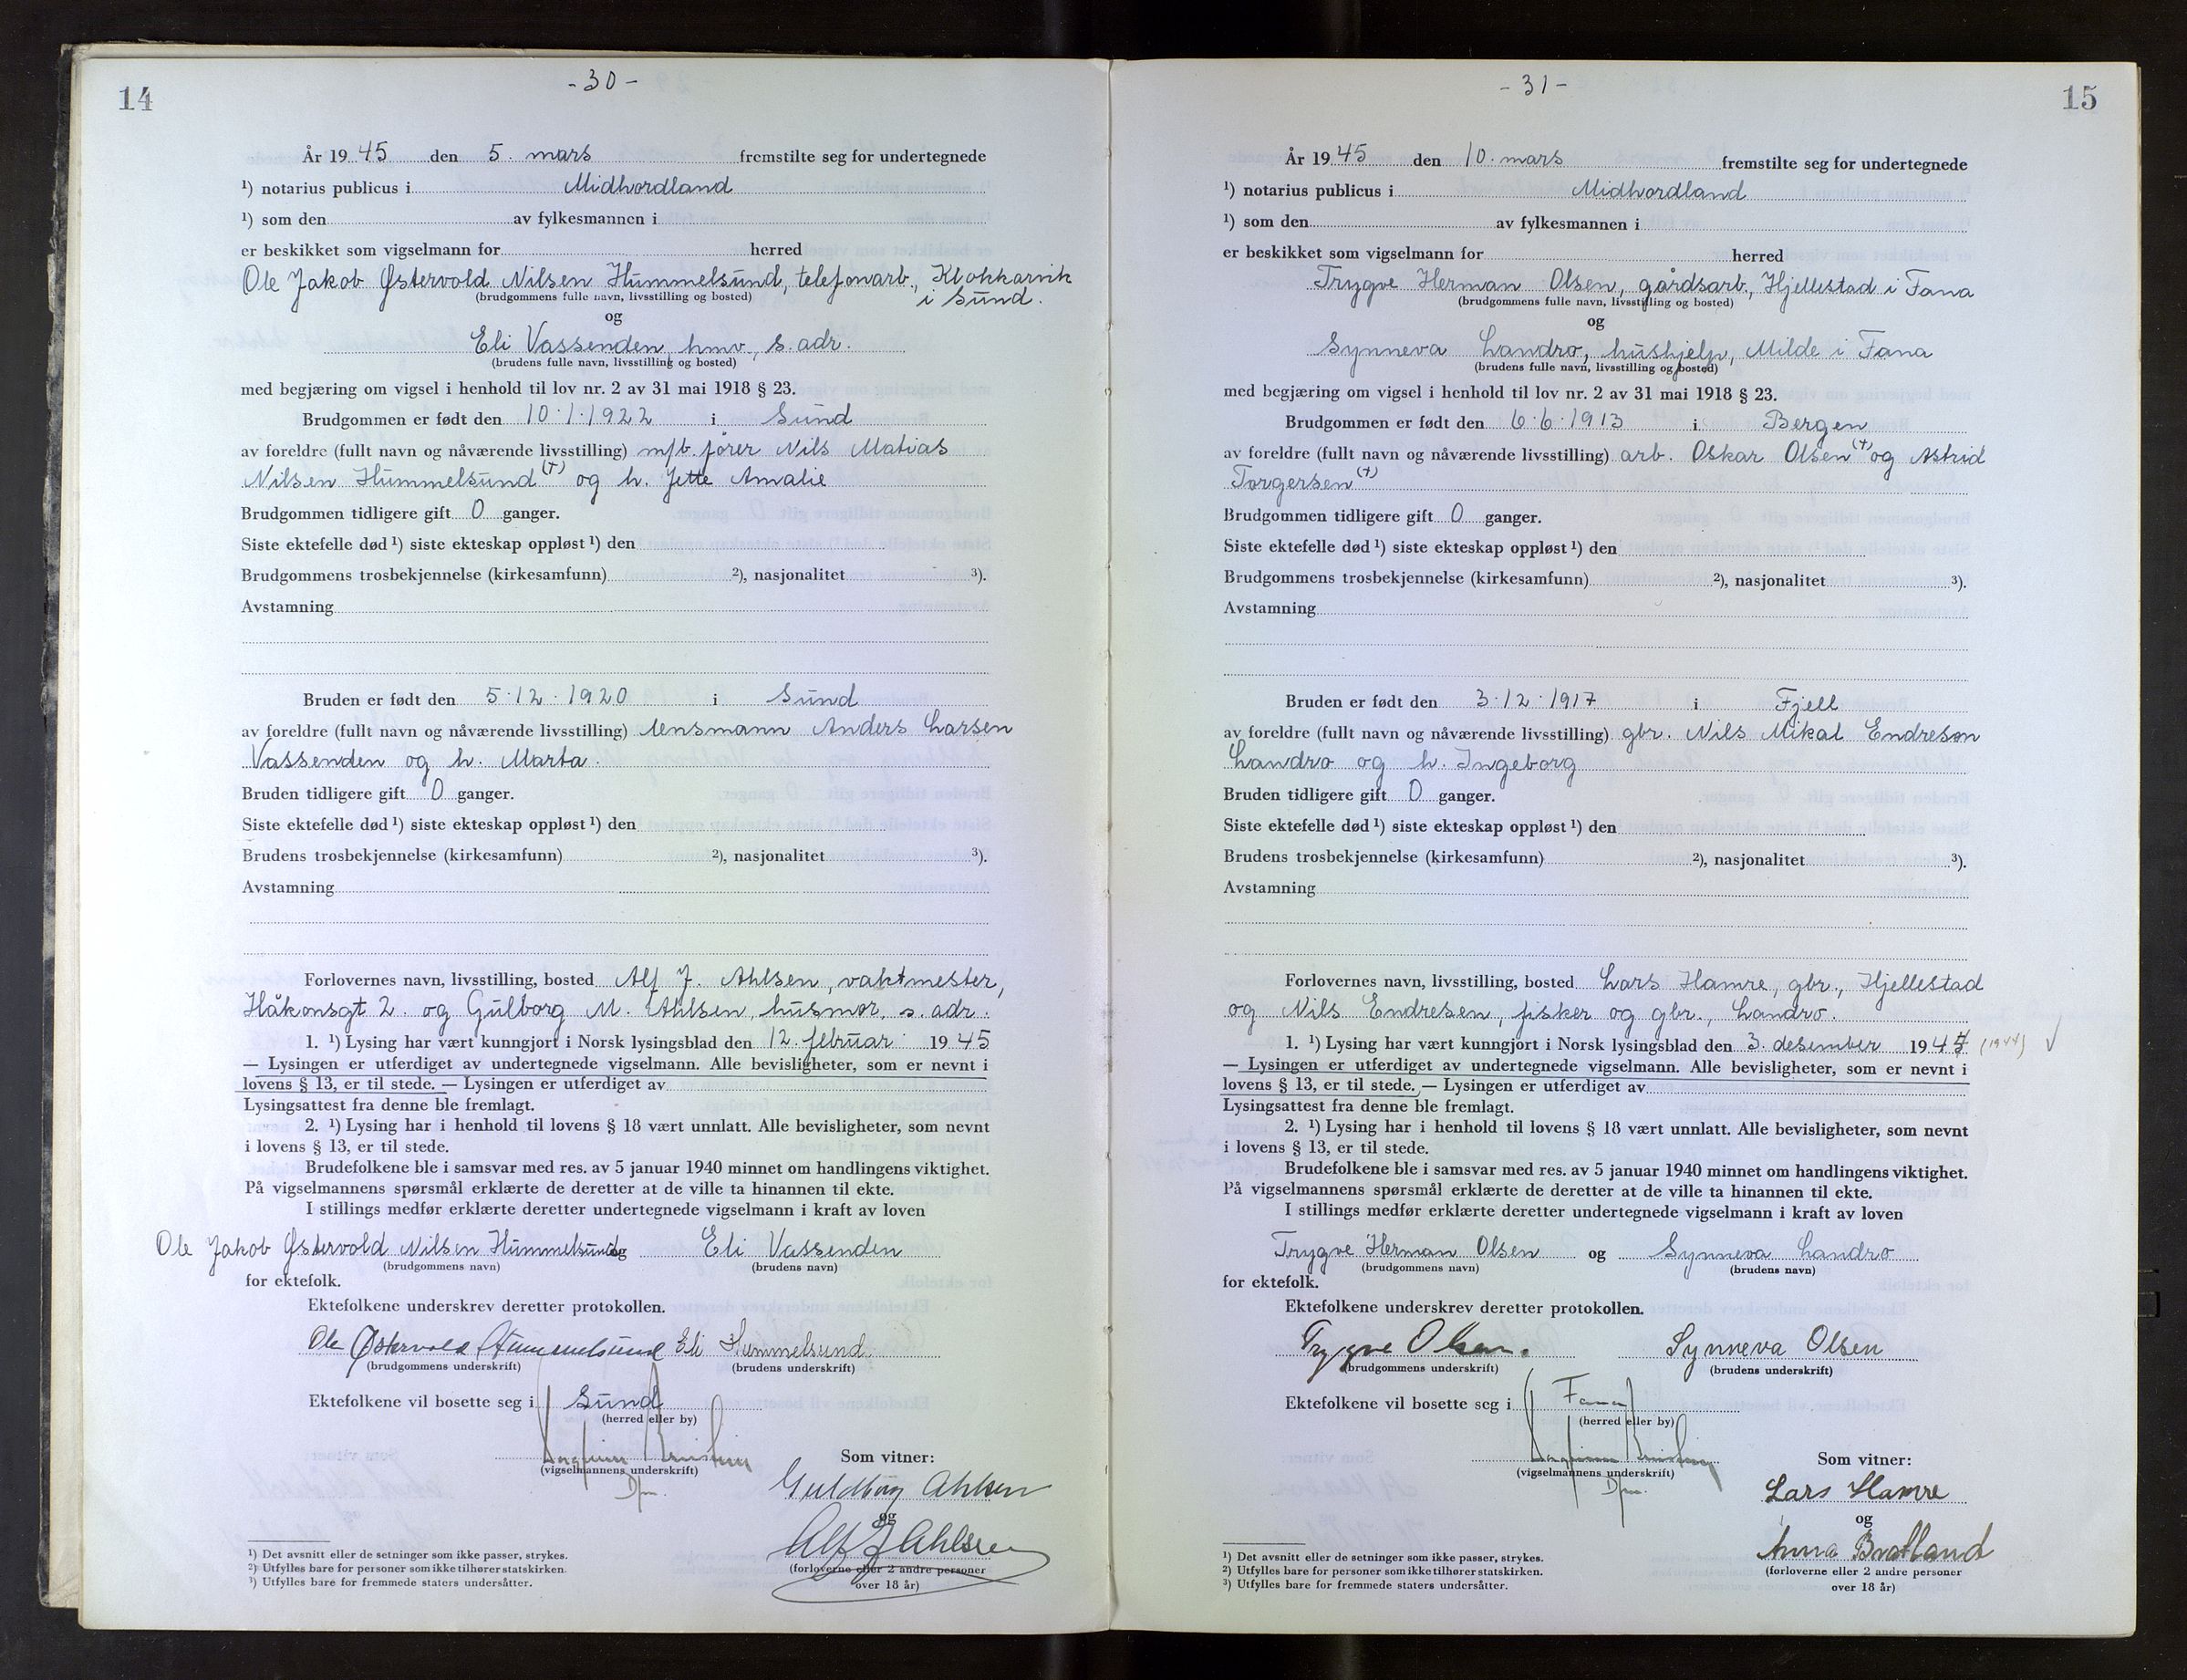 14
- 30 -
År 1945 den 5. mars fremstilte seg for undertegnede
¹) notarius publicus i Midhordland
¹) som den av fylkesmannen i
er beskikket som vigselmann for herred
Ole Jakob Østervold Nilsen Hummelsund, telefonarb., Klokkarvik
i Sund.
(brudgommens fulle navn, livsstilling og bosted)
og
Eli Vassenden, hmv., s. adr.
(brudens fulle navn, livsstilling og bosted)
med begjæring om vigsel i henhold til lov nr. 2 av 31 mai 1918 § 23.
Brudgommen er født den 10.1.1922 i Sund
av foreldre (fullt navn og nåværende livsstilling) m/b. fører Nils Matias
Nilsen Hummelsund (†) og h. Jette Amalie
Brudgommen tidligere gift 0 ganger.
Siste ektefelle død ¹) siste ekteskap oppløst ¹) den
Brudgommens trosbekjennelse (kirkesamfunn) ²), nasjonalitet ³).
Avstamning
Bruden er født den 5.12.1920 i Sund
av foreldre (fullt navn og nåværende livsstilling) lensmann Anders Larsen
Vassenden og h. Marta.
Bruden tidligere gift 0 ganger.
Siste ektefelle død ¹) siste ekteskap oppløst ¹) den
Brudens trosbekjennelse (kirkesamfunn) ²), nasjonalitet ³).
Avstamning
Forlovernes navn, livsstilling, bosted Alf J. Ahlsen, vaktmester,
Håkonsgt 2. og Gulborg M. Ahlsen, husmor, s. adr.
1. ¹) Lysing har vært kunngjort i Norsk lysingsblad den 12. februar 1945
— Lysingen er utferdiget av undertegnede vigselmann. Alle bevisligheter, som er nevnt i
lovens § 13, er til stede. — Lysingen er utferdiget av
Lysingsattest fra denne ble fremlagt.
2. ¹) Lysing har i henhold til lovens § 18 vært unnlatt. Alle bevisligheter, som nevnt
i lovens § 13, er til stede.
Brudefolkene ble i samsvar med res. av 5 januar 1940 minnet om handlingens viktighet.
På vigselmannens spørsmål erklærte de deretter at de ville ta hinannen til ekte.
I stillings medfør erklærte deretter undertegnede vigselmann i kraft av loven
Ole Jakob Østervold Nilsen Hummelsund og Eli Vassenden
(brudgommens navn) (brudens navn)
for ektefolk.
Ektefolkene underskrev deretter protokollen.
Ole Østervold Hummelsund Eli Hummelsund
(brudgommens underskrift) (brudens underskrift)
Ektefolkene vil bosette seg i Sund
(herred eller by)
Som vitner:
(vigselmannens underskrift)
Dfm.
Guldborg Ahlsen
og
Alf J Ahlsen
(forloverne eller 2 andre personer
over 18 år)
¹) Det avsnitt eller de setninger som ikke passer, strykes.
²) Utfylles bare for personer som ikke tilhører statskirken.
³) Utfylles bare for fremmede staters undersåtter.
15
- 31 -
År 1945 den 10. mars fremstilte seg for undertegnede
¹) notarius publicus i Midhordland
¹) som den av fylkesmannen i
er beskikket som vigselmann for herred
Trygve Herman Olsen, gårdsarb., Hjellestad i Fana
(brudgommens fulle navn, livsstilling og bosted)
og
Synneva Landro, hushjelp, Milde i Fana
(brudens fulle navn, livsstilling og bosted)
med begjæring om vigsel i henhold til lov nr. 2 av 31 mai 1918 § 23.
Brudgommen er født den 6.6.1913 i Bergen
av foreldre (fullt navn og nåværende livsstilling) arb. Oskar Olsen (†) og Astrid
Torgersen (†)
Brudgommen tidligere gift 0 ganger.
Siste ektefelle død ¹) siste ekteskap oppløst ¹) den
Brudgommens trosbekjennelse (kirkesamfunn) ²), nasjonalitet ³).
Avstamning
Bruden er født den 3.12.1917 i Fjell
av foreldre (fullt navn og nåværende livsstilling) gbr. Nils Mikal Endresen
Landro og h. Ingeborg
Bruden tidligere gift 0 ganger.
Siste ektefelle død ¹) siste ekteskap oppløst ¹) den
Brudens trosbekjennelse (kirkesamfunn) ²), nasjonalitet ³).
Avstamning
Forlovernes navn, livsstilling, bosted Lars Hamre, gbr., Hjellestad
og Nils Endresen, fisker og gbr., Landro.
1. ¹) Lysing har vært kunngjort i Norsk lysingsblad den 3. desember 194 (1944) √
— Lysingen er utferdiget av undertegnede vigselmann. Alle bevisligheter, som er nevnt i
lovens § 13, er til stede. — Lysingen er utferdiget av
Lysingsattest fra denne ble fremlagt.
2. ¹) Lysing har i henhold til lovens § 18 vært unnlatt. Alle bevisligheter, som nevnt
i lovens § 13, er til stede.
Brudefolkene ble i samsvar med res. av 5 januar 1940 minnet om handlingens viktighet.
På vigselmannens spørsmål erklærte de deretter at de ville ta hinannen til ekte.
I stillings medfør erklærte deretter undertegnede vigselmann i kraft av loven
Trygve Herman Olsen og Synneva Landro
(brudgommens navn) (brudens navn)
for ektefolk.
Ektefolkene underskrev deretter protokollen.
Trygve Olsen. Synneva Olsen
(brudgommens underskrift) (brudens underskrift)
Ektefolkene vil bosette seg i Fana
(herred eller by)
Som vitner:
(vigselmannens underskrift)
Dfm.
Lars Hamre
og
Anna Bratland
(forloverne eller 2 andre personer
over 18 år)
¹) Det avsnitt eller de setninger som ikke passer, strykes.
²) Utfylles bare for personer som ikke tilhører statskirken.
³) Utfylles bare for fremmede staters undersåtter.